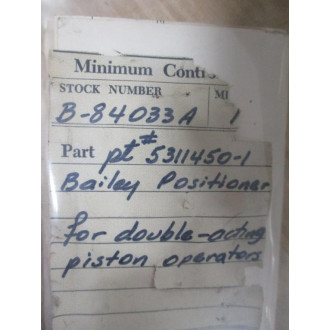 Minimum Contr
STOCK NUMBER MI
B-84033A 1
Part pt# 5311450-1
Bailey Positioner
for double-acting
piston operators